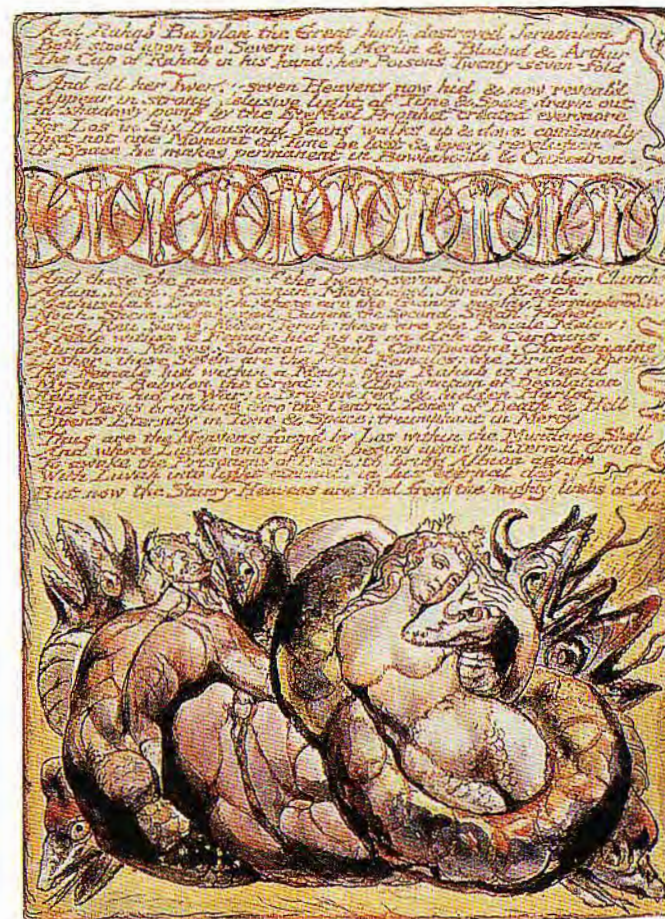 And Rahab Babylon the Great hath destroyed Jerusalem
Bath stood upon the Severn with Merlin & Bladud & Arthur
The Cup of Rahab in his hand: her Poisons Twenty-seven-fold
And all her Twen -seven Heavens now hid & now reveal'd
Appear in strong delusive light of Time & Space drawn out
In shadowy pomp by the Eternal Prophet created evermore
For Los in Six Thousand Years walks up & down continually
That not one Moment of Time be lost & every revolution
Of Space he makes permanent in Bowlahoola & Cathedron.
And these the names of the Twenty-seven Heavens & their Church
Adam, Seth, Enos, Cainan, Jared, Enoch,
Methuselah, Lamech: these are the Giants mighty Hermaphroditic
Noah, Shem, Arphaxad, Cainan the Second, Salah, Heber,
Peleg, Reu, Serug, Nahor, Terah: these are the Female Males:
A Male within a Female hid as in an Ark & Curtains.
Abraham, Moses, Solomon, Paul, Constantine, Charlemaine
Luther, these Seven are the Male Females: the Dragon Forms
The Female hid within a Male: thus Rahab is reveald
Mystery Babylon the Great: the Abomination of Desolation
Religion hid in War: a Dragon red, & hidden Harlot
But Jesus breaking thro' the Central Zones of Death & Hell
Opens Eternity in Time & Space; triumphant in Mercy
Thus are the Heavens formd by Los within the Mundane Shell
And where Luther ends Adam begins again in Eternal Circle
To awake the Prisoners of Death; to bring Albion again
With Luvah into light eternal, in his eternal day.
But now the Starry Heavens are fled from the mighty limbs of Al